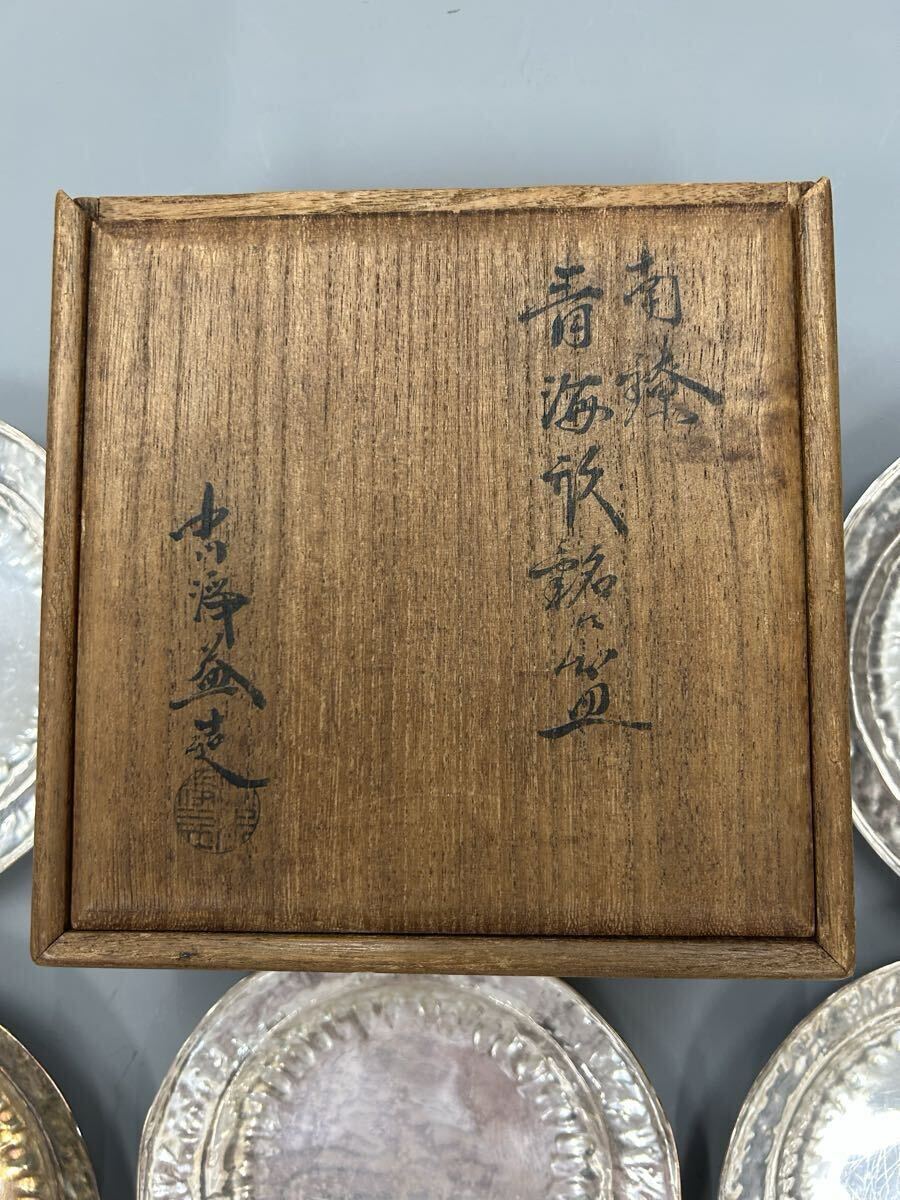 南鐐
青海形銘々皿
中川浄益造